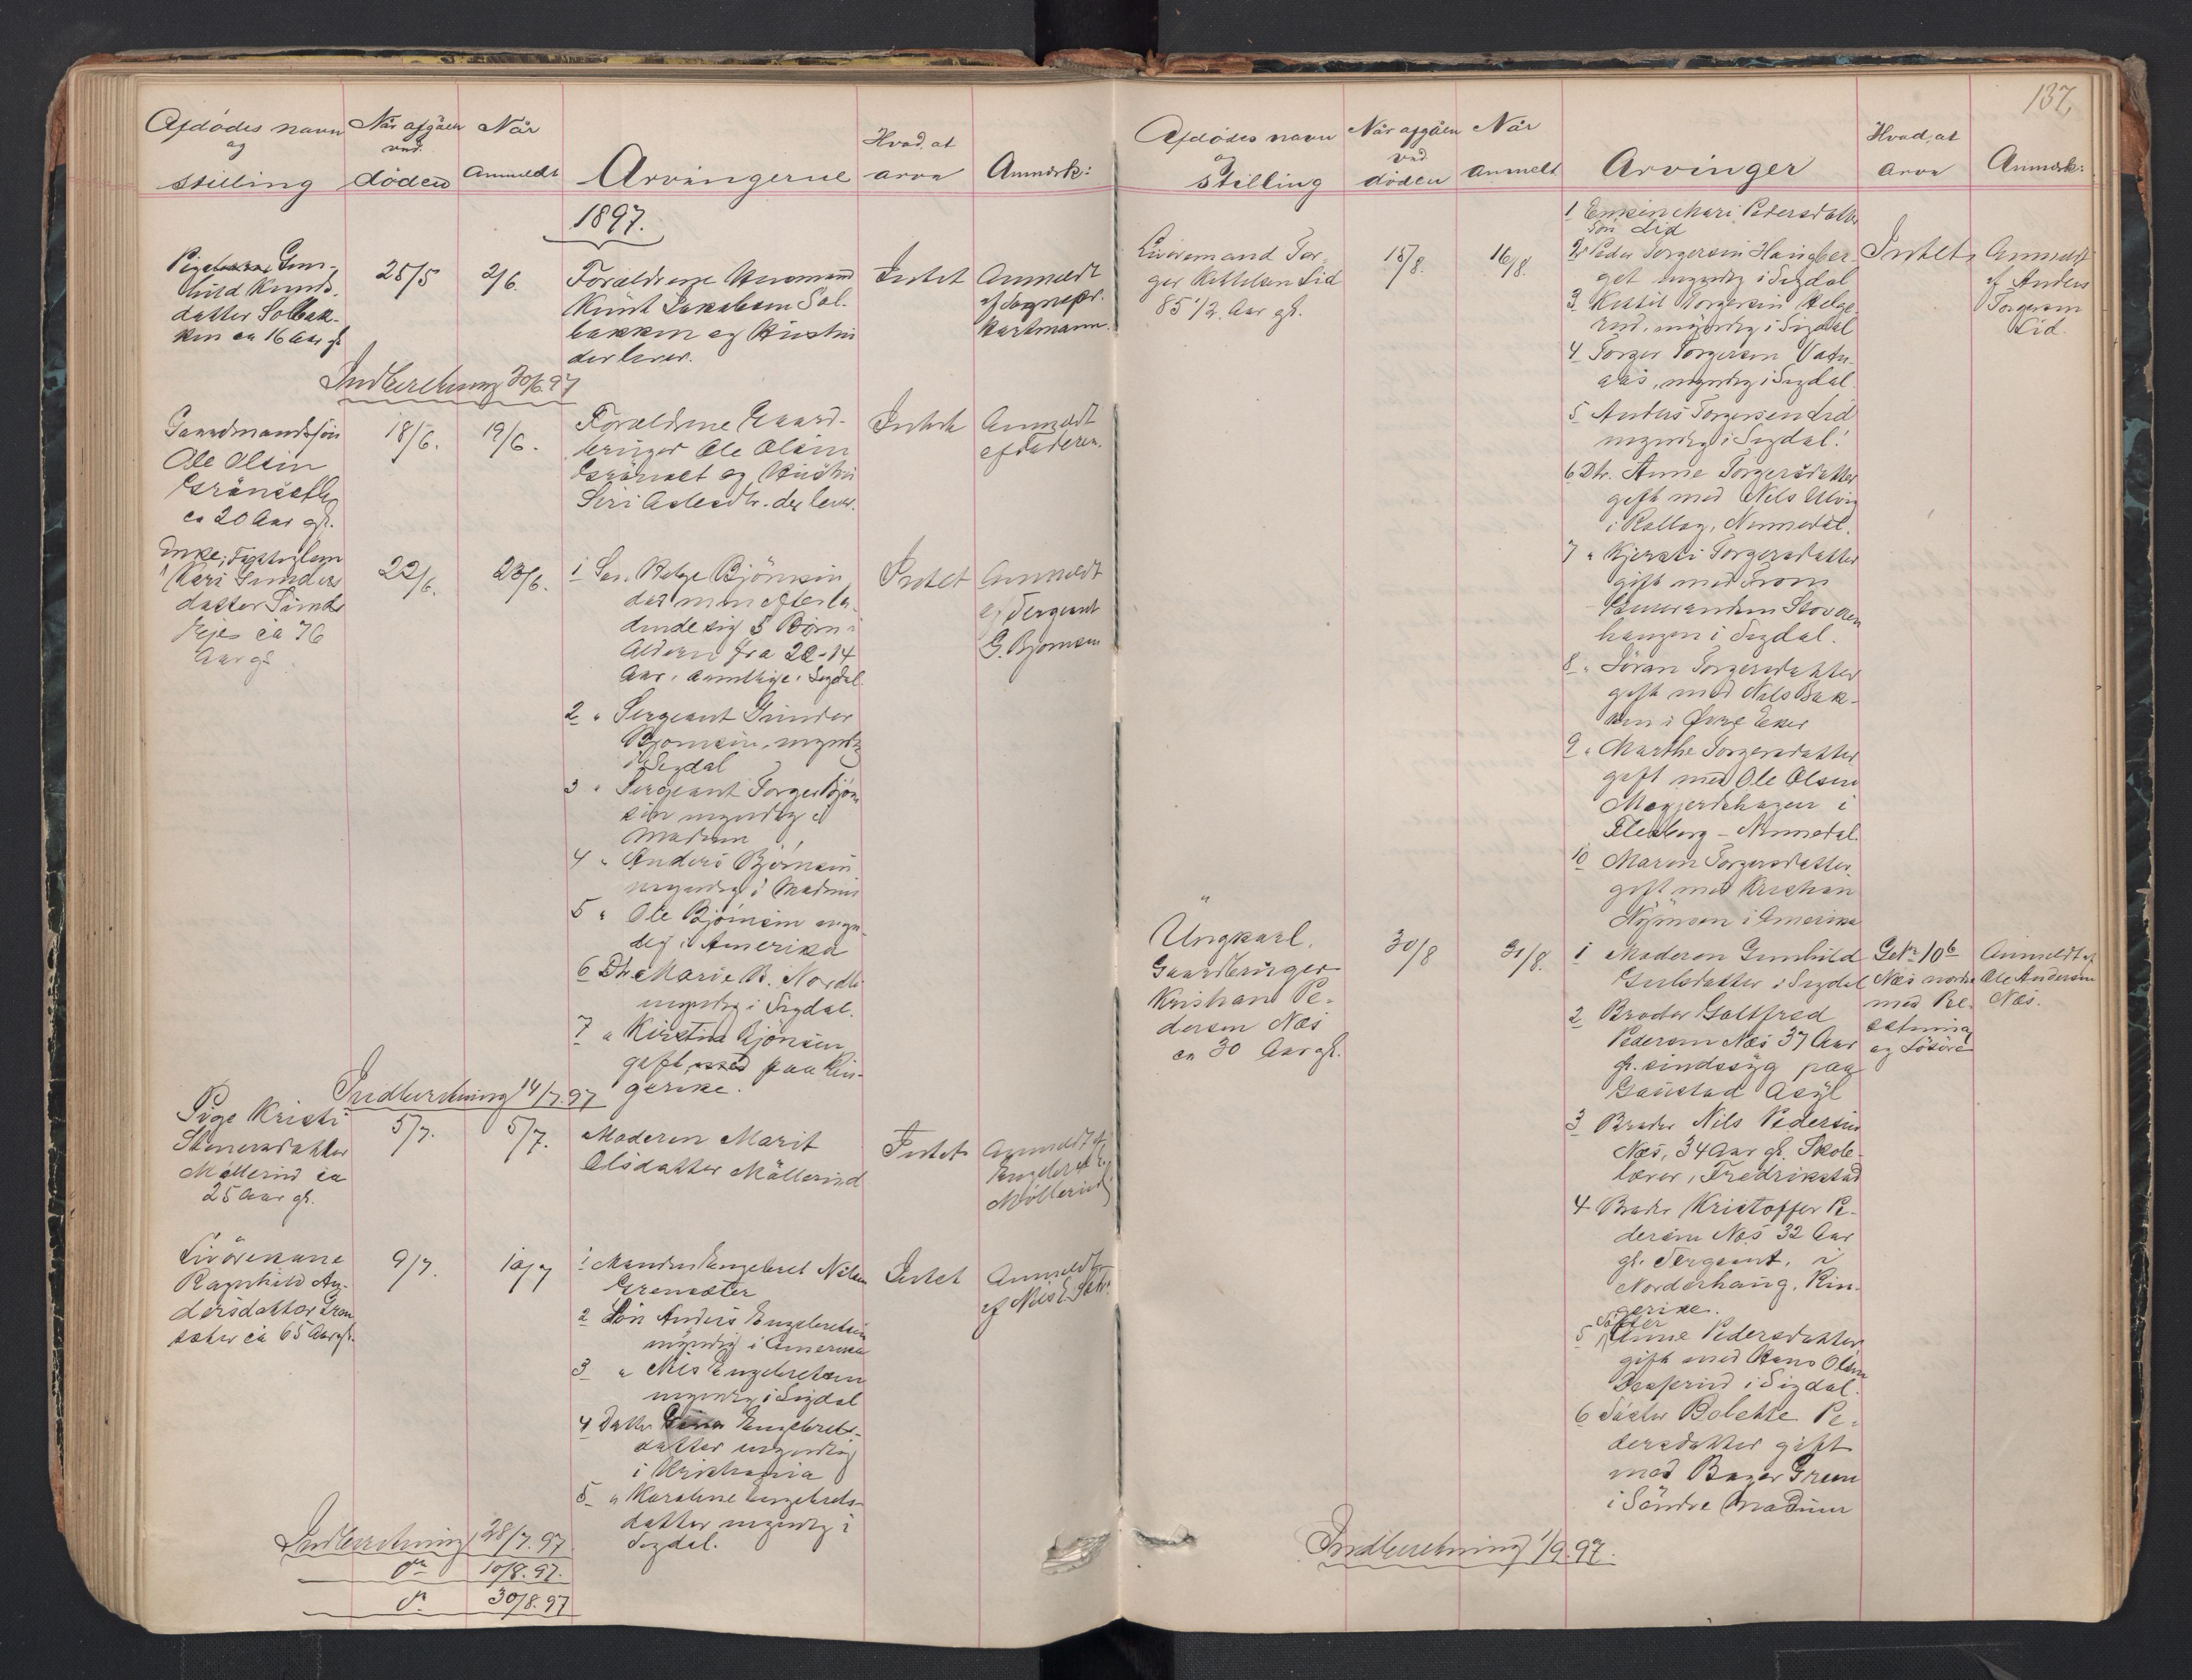 Afdödes navn
og
stilling
Når afgåen
ved
döden
Når
Anmeldt
Arvingerne
Hvad, at
arve
Anmærk:
1897.
Pigebarn Gun-
hild Knuds-
datter Solbak-
ken ca 16 Aar gl
25/5
2/6.
Forældrene Husmand
Knut Jakobsen Sol-
bakken og Hustru
der lever.
Intet
Anmeldt
af Sogneprest
Hartmann.
Indberetning 30/6 97
Gaardmandssön
Ole Olsen
Grönsett
ca 20 Aar gl.
18/6.
19/6.
Forældrene Gaard-
bruger Ole Olsen
og Hustru
Siri Aslesdtr. der lever.
Intet
Anmeldt
af Faderen.
Enke, Fattiglem
Kari Gunders
datter
Eje ca 76
Aar gl
22/6.
23/6.
1 Sön. Helge Björnsen
död men efterla-
dende sig 5 Börn i
Alderen fra 20-14
Aar, samtlige i Sigdal.
2 " Sergeant Gunder
Bjornsen, myndig
i Sigdal
3 " Sergeant Torger Björn
sen myndig i
Modum
4 " Anders Björnsen
myndig i Modum
5 " Ole Björnsen myn-
dig i Amerika
6 Dtr Marie B. Nordli
myndig i Sigdal.
7 " Kirstine Björnsen
gift med paa Rin-
gerike.
Intet
Anmeldt
af Sergeant
G. Bjornsen
Indberetning 14/7.97
Pige Kristi
Stenersdatter
Möllerud ca
25 Aar gl.
5/7.
5/7.
Moderen Marit
Olsdatter Möllerud
Intet
Anmeldt af
Engebret
Möllerud
Livörekone
Ragnhild An-
dersdatter Gren
sæter ca 65 Aar gl.
9/7.
10/7
1 Manden Engebret Nilsen
Grensæter
2 Sön Anders Engebretsen
myndig i Amerika
3 " Nils Engebretsen
myndig i Sigdal
4 Datter Engebrets-
datter myndig
i Kristiania
5 " Karoline Engebrets-
datter myndig i
Sigdal.
Intet
Anmeldt
af Nils E. Sætr.
Indberetning 28/7.97
do 10/8.97.
do 30/8.97
137,
Afdödes navn
og
Stilling
Når afgåen
ved
döden
Når
anmelt
Arvinger
Hvad, at
arve
Anmærk:
Livöremand Tor-
ger Kittilsen Lid
85 1/2 Aar gl.
15/8.
16/8.
1 Enken Mari Pedersdatter
Lid
Sön
2 Peder Torgersen Haugber-
get myndig i Sigdal
3 Kittil Torgersen Helge-
rud, myndig i Sigdal
4 Torger Torgersen Vatn-
aas, myndig i Sigdal.
5 Anders Torgersen Lid
myndig i Sigdal.
6 Dtr. Anne Torgersdatter
gift med Nils Ulvig
i Rollag, Nummedal.
7 " Kjersti Torgersdatter
gift med Trom
Gunerandsen Stovern
haugen i Sigdal.
8 " Jöran Torgersdatter
gift med Nils Bak-
ken i Övre Eker
9 " Marthe Torgersdatter
gift med Ole Olsen
Mogjerdehagen i
Flesberg - Nummedal.
10 Maren Torgersdatter
gift med Kristian
i Amerika
Intet,
Anmeldt
af Anders
Torgersen
Lid.
"
Ungkarl,
Gaardbruger
Kristian Pe-
dersen Næs
ca 30 Aar gl.
30/8
31/8.
1 Moderen Gunhild
Gulsdatter i Sigdal
2 Broder Goltfred
Pedersen Næs 37 Aar
gl. sindssyg paa
Gaustad Asyl
3 Broder Nils Pedersen
Næs, 34 Aar gl. Skole-
lærer, Fredrikstad
4 Broder Kristoffer Pe-
dersen Næs 32 Aar
gl. Sergeant, i
Norderhaug, Rin-
gerike.
Söster
5 Anne Pedersdatter
gift med Hans Olsen
i Sigdal.
6 Söster Bolette Pe-
dersdatter gift
med Bager Green
i Söndre Modum
G. No 106
Næs nordre
med Be-
sætning
og Lösöre
Anmeldt af
Ole Andersen
Næs.
Indberetning 1/9.97.